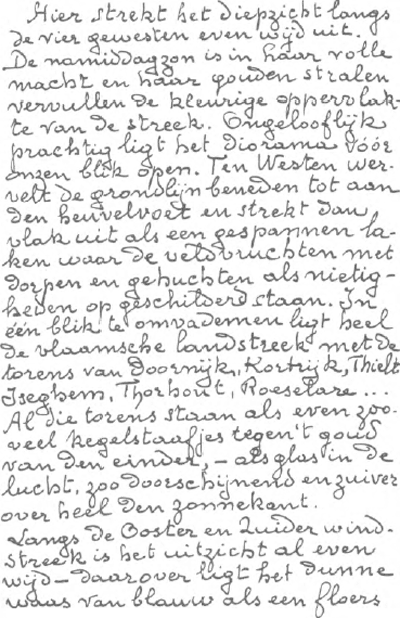 Hier strekt het diepzicht langs
de vier gewesten even wijd uit.
De namiddagzon is in haar volle
macht en haar gouden stralen
vervullen de kleurige oppervlak-
te van de streek. Ongelooflijk
prachtig ligt het diorama vóór
onzen blik open. Ten Westen wer-
velt de grondlijn beneden tot aan
den heuvelvoet en strekt dan
vlak uit als een gespannen la-
ken waar de veldvruchten met
dorpen en gehuchten als nietig-
heden op geschilderd staan. In
één blik te omvademen ligt heel
de vlaamsche landstreek met de
torens van Doornijk, Kortrijk, Thielt
Iseghem, Thorhout, Roeselare ...
Al die torens staan als even zoo-
veel kegelstaafjes tegen 't goud
van den einder, – als glas in de
lucht, zoo doorschijnend en zuiver
over heel den zonnekant.
Langs de Ooster en Zuider wind-
streek is het uitzicht al even
wijd – daarover ligt het dunne
waas van blauw als een floers